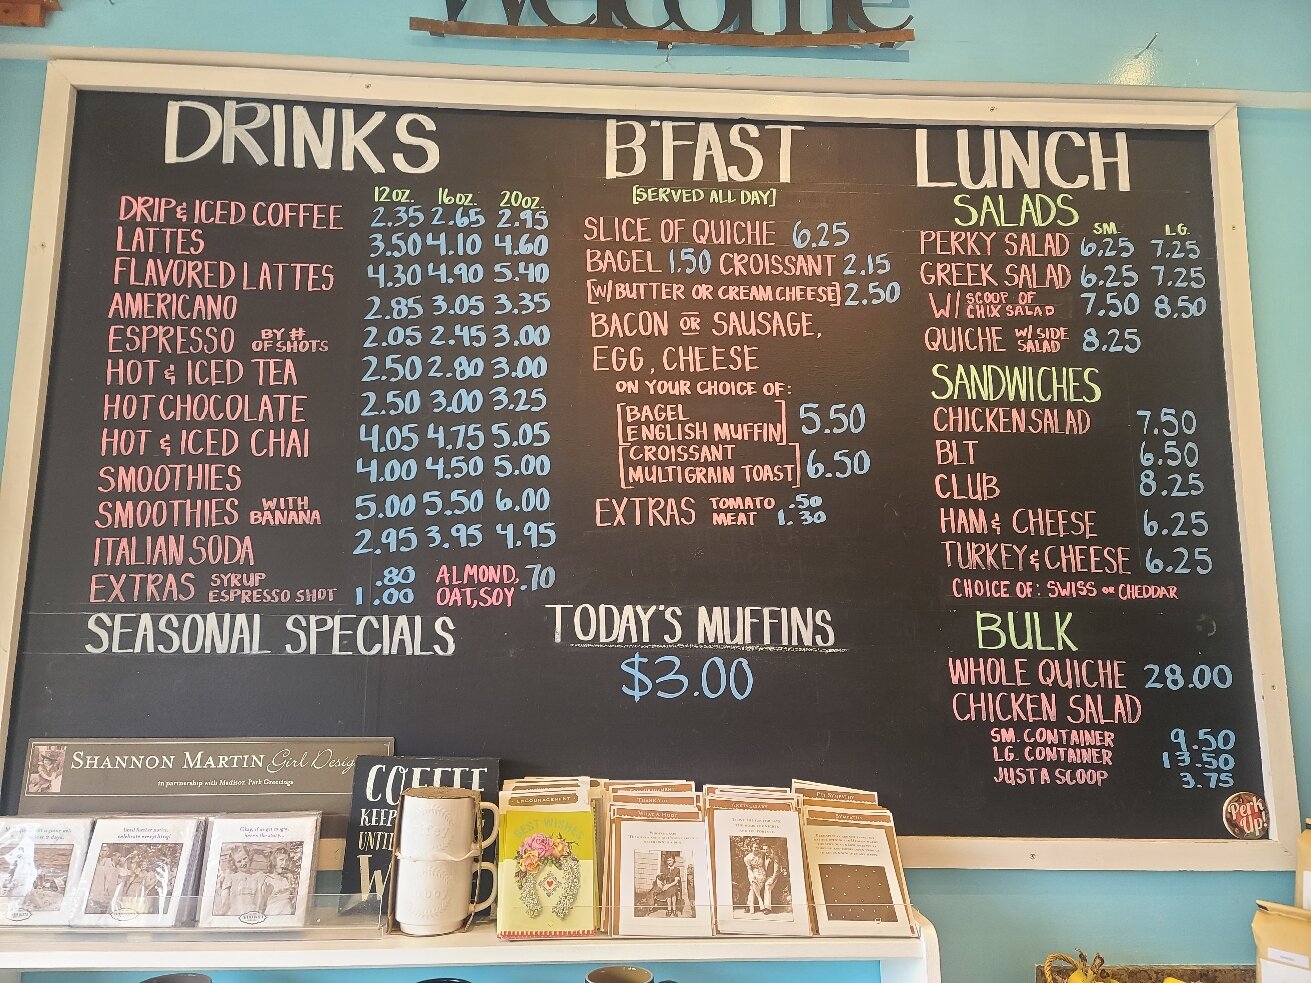 Welcome
DRINKS
12oz. 16oz. 20oz.
DRIP & ICED COFFEE 2.35 2.65 2.95
LATTES 3.50 4.10 4.60
FLAVORED LATTES 4.30 4.90 5.40
AMERICANO 2.85 3.05 3.35
ESPRESSO BY # OF SHOTS 2.05 2.45 3.00
HOT & ICED TEA 2.50 2.80 3.00
HOT CHOCOLATE 2.50 3.00 3.25
HOT & ICED CHAI 4.05 4.75 5.05
SMOOTHIES 4.00 4.50 5.00
SMOOTHIES WITH BANANA 5.00 5.50 6.00
ITALIAN SODA 2.95 3.95 4.95
EXTRAS SYRUP .80 ALMOND, .70
ESPRESSO SHOT 1.00 OAT, SOY
SEASONAL SPECIALS
B'FAST
[SERVED ALL DAY]
SLICE OF QUICHE 6.25
BAGEL 1.50 CROISSANT 2.15
[W/ BUTTER OR CREAM CHEESE] 2.50
BACON OR SAUSAGE,
EGG, CHEESE
ON YOUR CHOICE OF:
[BAGEL
ENGLISH MUFFIN] 5.50
[CROISSANT
MULTIGRAIN TOAST] 6.50
EXTRAS TOMATO .50
MEAT 1.30
TODAY'S MUFFINS
$3.00
LUNCH
SALADS
SM. LG.
PERKY SALAD 6.25 7.25
GREEK SALAD 6.25 7.25
W/ SCOOP OF CHIX SALAD 7.50 8.50
QUICHE W/ SIDE SALAD 8.25
SANDWICHES
CHICKEN SALAD 7.50
BLT 6.50
CLUB 8.25
HAM & CHEESE 6.25
TURKEY & CHEESE 6.25
CHOICE OF: SWISS OR CHEDDAR
BULK
WHOLE QUICHE 28.00
CHICKEN SALAD
SM. CONTAINER 9.50
LG. CONTAINER 13.50
JUST A SCOOP 3.75
Perk Up!
SHANNON MARTIN Girl Desig
in partnership with Madison Park Greetings
COFFEE
KEEP
UNTIL
W
ENCOURAGEMENT
BEST WISHES
THANK YOU
ANNIVERSARY
SYMPATHY